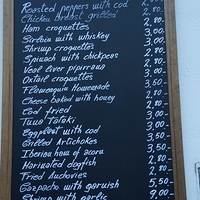 Roasted peppers with cod
Chicken breast grilled 2,80
Ham croquettes 3,00
Sirloin with whiskey 3,50
Shrimp croquettes 3,00
Spinach with chickpeas 2,80
Veal liver pipirrana 3,00
Oxtail croquettes 3,50
Flamenquin Homemade 3,50
Cheese baked with honey 2,80
Cod fried 3,00
Tuna Tataki 3,50
Eggplant with cod 3,00
Grilled Artichokes 3,50
Iberian ham of acorn
Marinated dogfish 2,80
Fried Anchovies 2,80
Gazpacho with garnish 5,50
Shrimp with garlic 9,00